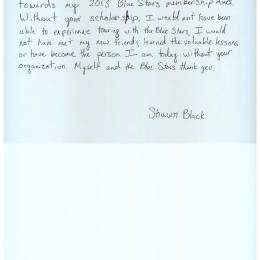 towards my 2013 Blue Stars membership dues.
Without your scholarship, I would not have been
able to experience touring with the Blue Stars. I would
not have met my new friends, learned the valuable lessons
or have become the person I am today without your
organization. Myself and the Blue Stars thank you.
Shawn Black